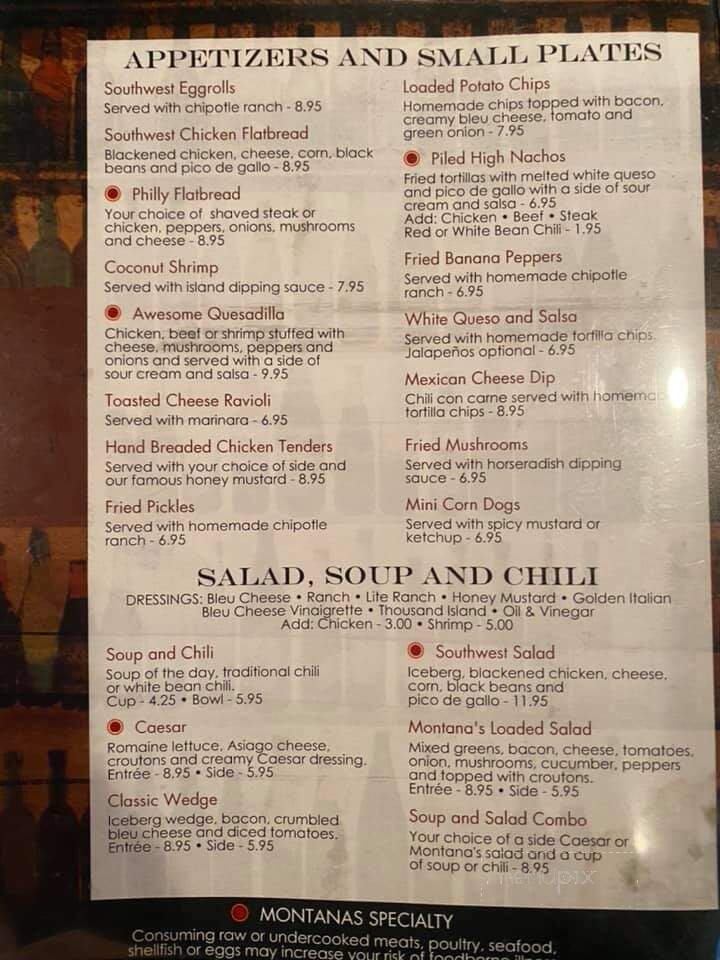 APPETIZERS AND SMALL PLATES
Southwest Eggrolls
Served with chipotle ranch - 8.95
Southwest Chicken Flatbread
Blackened chicken, cheese, corn, black
beans and pico de gallo - 8.95
Philly Flatbread
Your choice of shaved steak or
chicken, peppers, onions, mushrooms
and cheese - 8.95
Coconut Shrimp
Served with island dipping sauce - 7.95
Awesome Quesadilla
Chicken, beef or shrimp stuffed with
cheese, mushrooms, peppers and
onions and served with a side of
sour cream and salsa - 9.95
Toasted Cheese Ravioli
Served with marinara - 6.95
Hand Breaded Chicken Tenders
Served with your choice of side and
our famous honey mustard - 8.95
Fried Pickles
Served with homemade chipotle
ranch - 6.95
Loaded Potato Chips
Homemade chips topped with bacon,
creamy bleu cheese, tomato and
green onion - 7.95
Piled High Nachos
Fried tortillas with melted white queso
and pico de gallo with a side of sour
cream and salsa - 6.95
Add: Chicken • Beef • Steak
Red or White Bean Chili - 1.95
Fried Banana Peppers
Served with homemade chipotle
ranch - 6.95
White Queso and Salsa
Served with homemade tortilla chips.
Jalapeños optional - 6.95
Mexican Cheese Dip
Chili con carne served with
tortilla chips - 8.95
Fried Mushrooms
Served with horseradish dipping
sauce - 6.95
Mini Corn Dogs
Served with spicy mustard or
ketchup - 6.95
SALAD, SOUP AND CHILI
DRESSINGS: Bleu Cheese • Ranch • Lite Ranch • Honey Mustard • Golden Italian
Bleu Cheese Vinaigrette • Thousand Island • Oil & Vinegar
Add: Chicken - 3.00 • Shrimp - 5.00
Soup and Chili
Soup of the day, traditional chili
or white bean chili.
Cup - 4.25 • Bowl - 5.95
Caesar
Romaine lettuce, Asiago cheese,
croutons and creamy Caesar dressing.
Entrée - 8.95 • Side - 5.95
Classic Wedge
Iceberg wedge, bacon, crumbled
bleu cheese and diced tomatoes.
Entrée - 8.95 • Side - 5.95
Southwest Salad
Iceberg, blackened chicken, cheese,
corn, black beans and
pico de gallo - 11.95
Montana's Loaded Salad
Mixed greens, bacon, cheese, tomatoes,
onion, mushrooms, cucumber, peppers
and topped with croutons.
Entrée - 8.95 • Side - 5.95
Soup and Salad Combo
Your choice of a side Caesar or
Montana's salad and a cup
of soup or chili - 8.95
MONTANAS SPECIALTY
Consuming raw or undercooked meats, poultry, seafood,
shellfish or eggs may increase your risk of foodborne